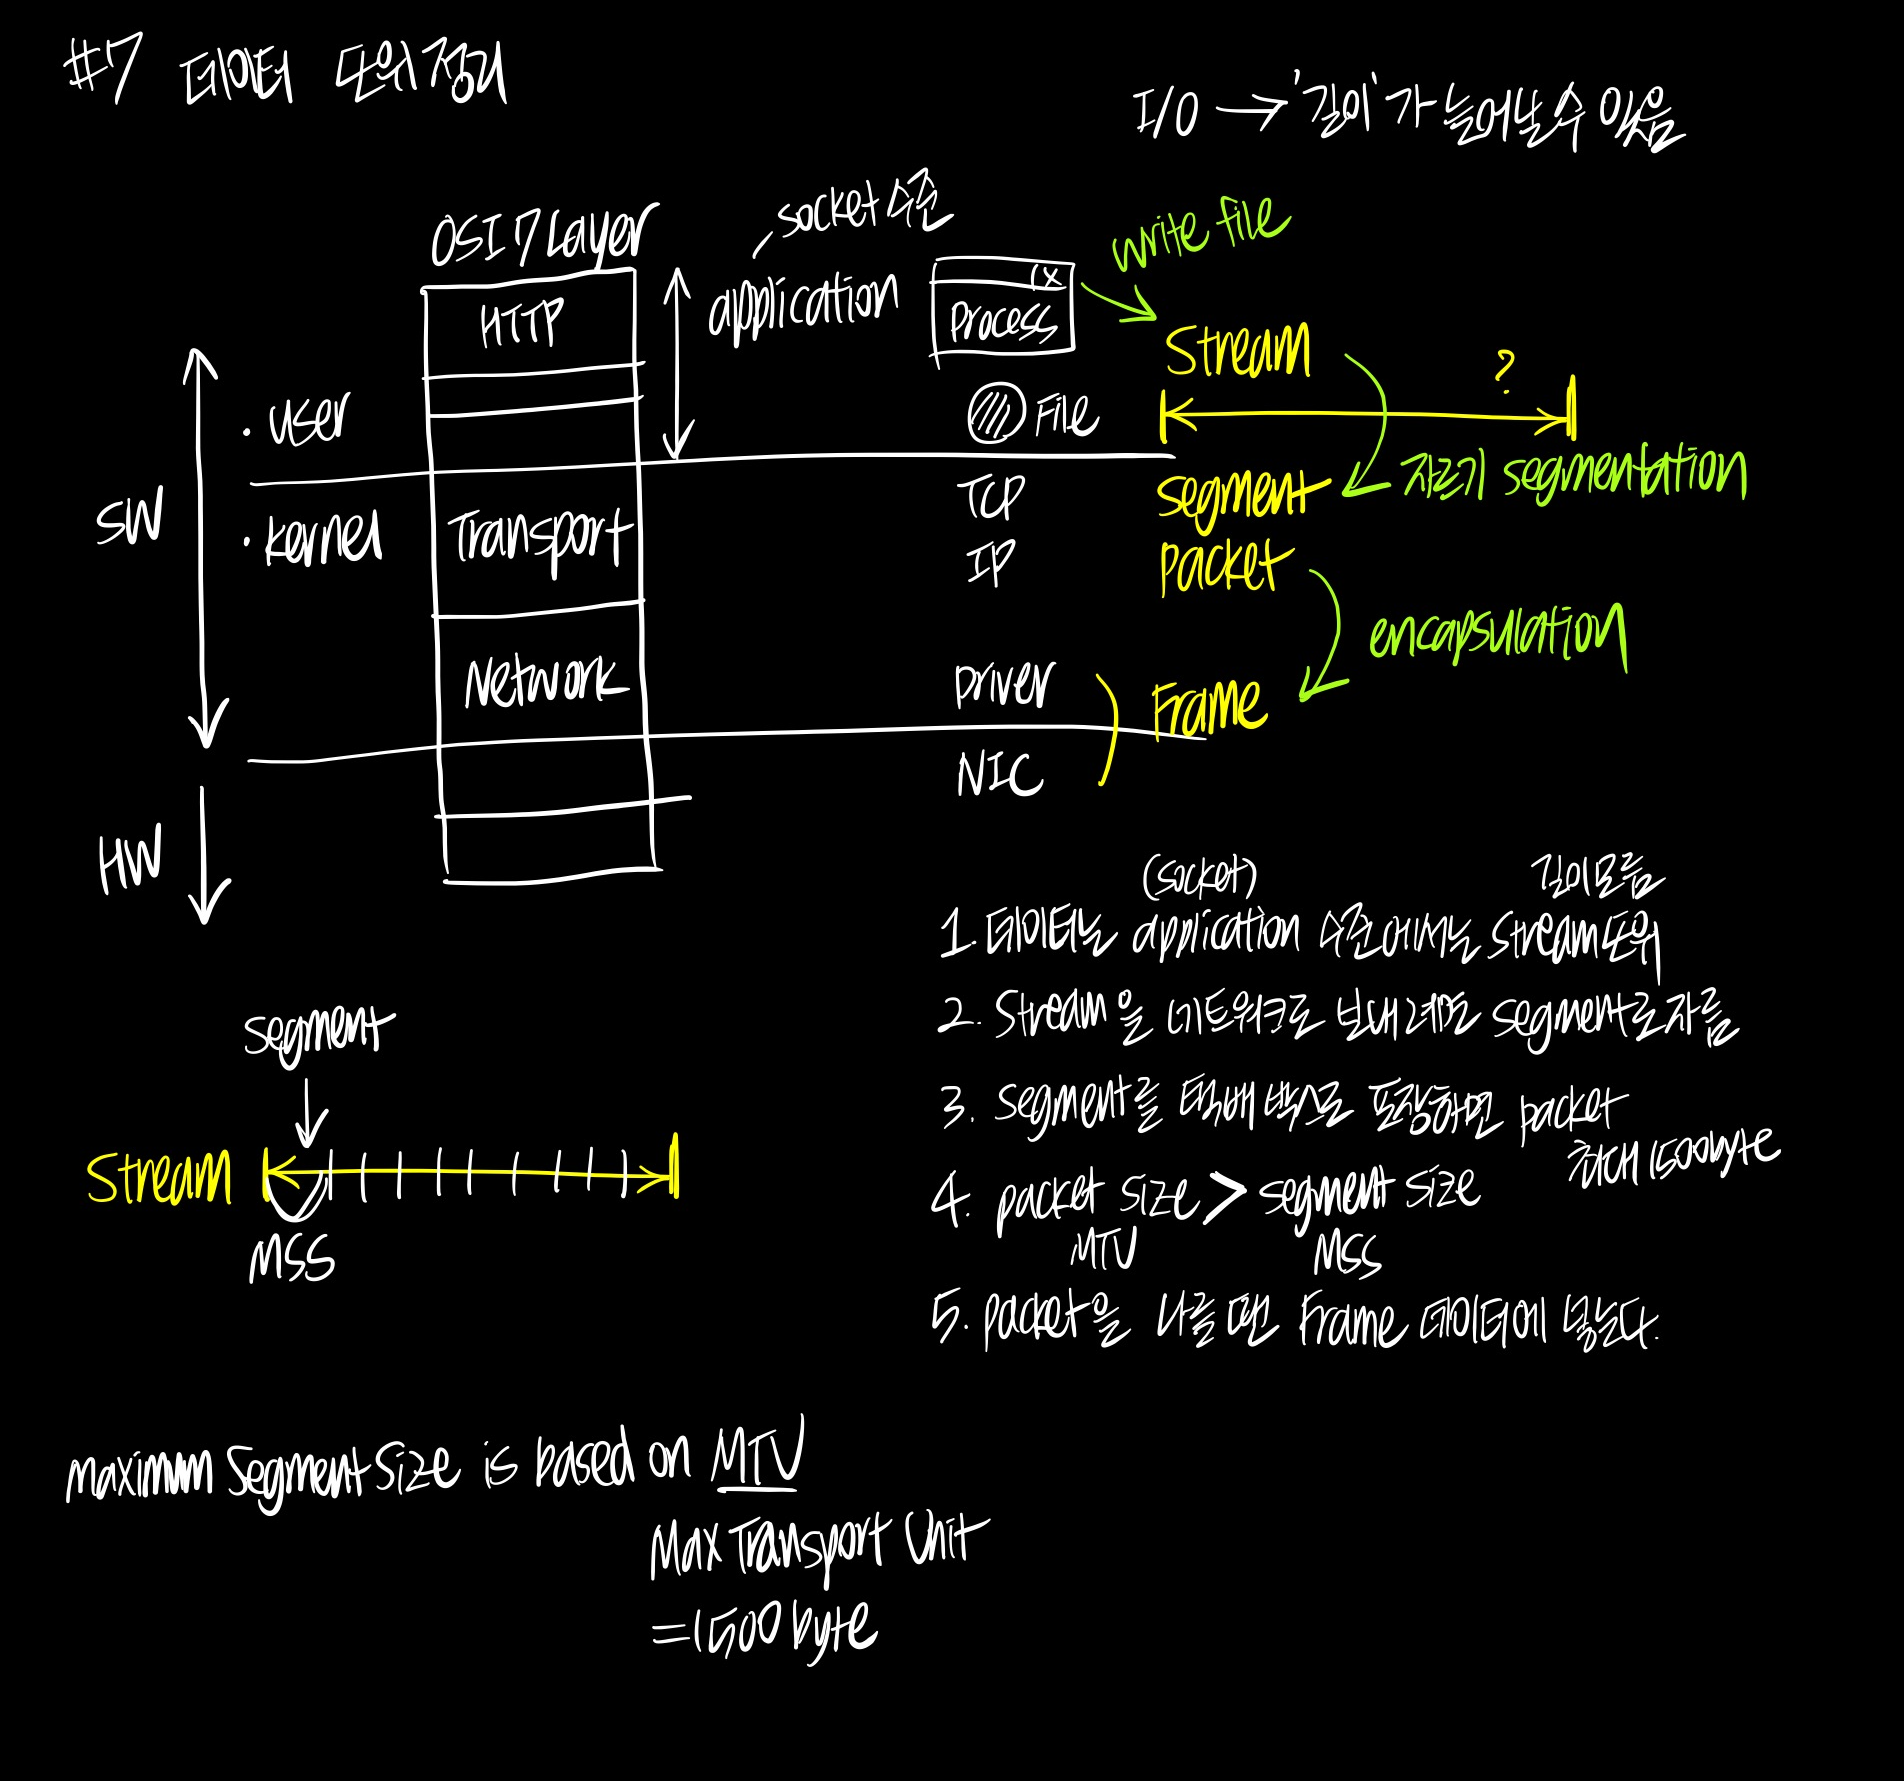 #7 데이터 단위 정리
I/O → '길이'가 늘어날 수 있음
OSI 7 Layer
socket 수준
application
write file
HTTP
(x
process
Stream
?
File
자르기 segmentation
· user
SW
· kernel
Transport
TCP
segment
IP
packet
encapsulation
Network
Driver
Frame
NIC
HW
(socket)
길이 모름
1. 데이터는 application 수준에서는 stream 단위
2. stream을 네트워크로 보내려면 segment로 자름
3. segment를 택배 박스로 포장하면 packet
최대 1500byte
4. packet size > segment size
MTU
MSS
5. packet을 나를 땐 Frame 데이터에 넣는다.
segment
↓
Stream
MSS
maximum Segment Size is based on MTU
Max Transport Unit
= 1500 byte